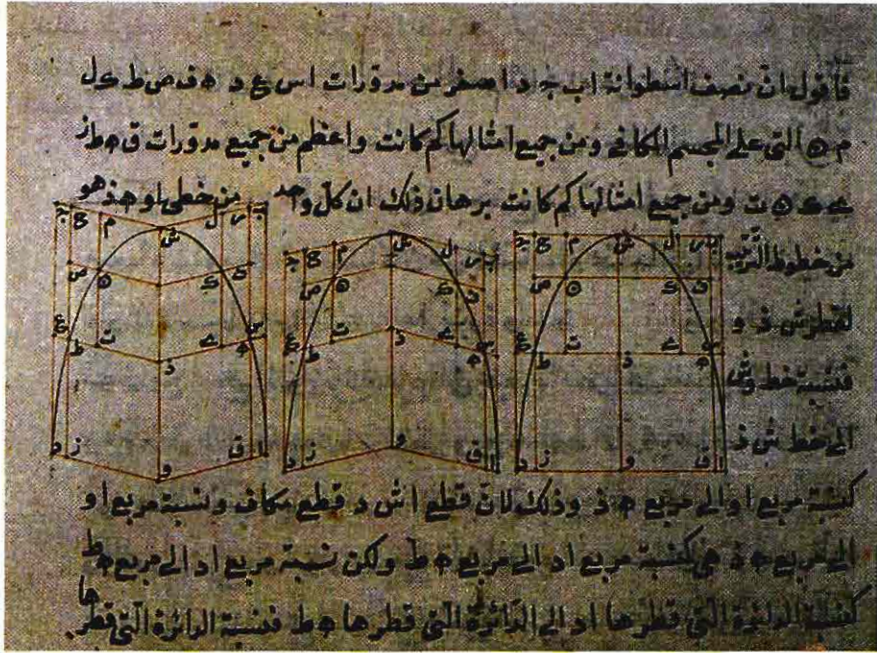 فاقول ان نصف اسطوانة اب ج د اصغر من مدورات اس ع د ه ف ص ط ك ل
م ن التي على المجسم المكافي ومن جميع امثالها كم كانت واعظم من جميع مدورات ق ه ط ز
ى ك ن ت ومن جميع امثالها كم كانت برهان ذلك ان كل واحد من خطي او ه ذ هو
من خطوط الترتيب
لقطر ش ذ و
فنسبة خط وش
الى خط ش ذ
كنسبة مربع او الى مربع ه ذ وذلك لان قطع اش د قطع مكاف ونسبة مربع او
الى مربع ه ذ هي كنسبة مربع اد الى مربع ه ط ولكن نسبة مربع اد الى مربع ه ط
كنسبة الدائرة التي قطرها اد الى الدائرة التي قطرها ه ط فنسبة الدائرة التي قطرها